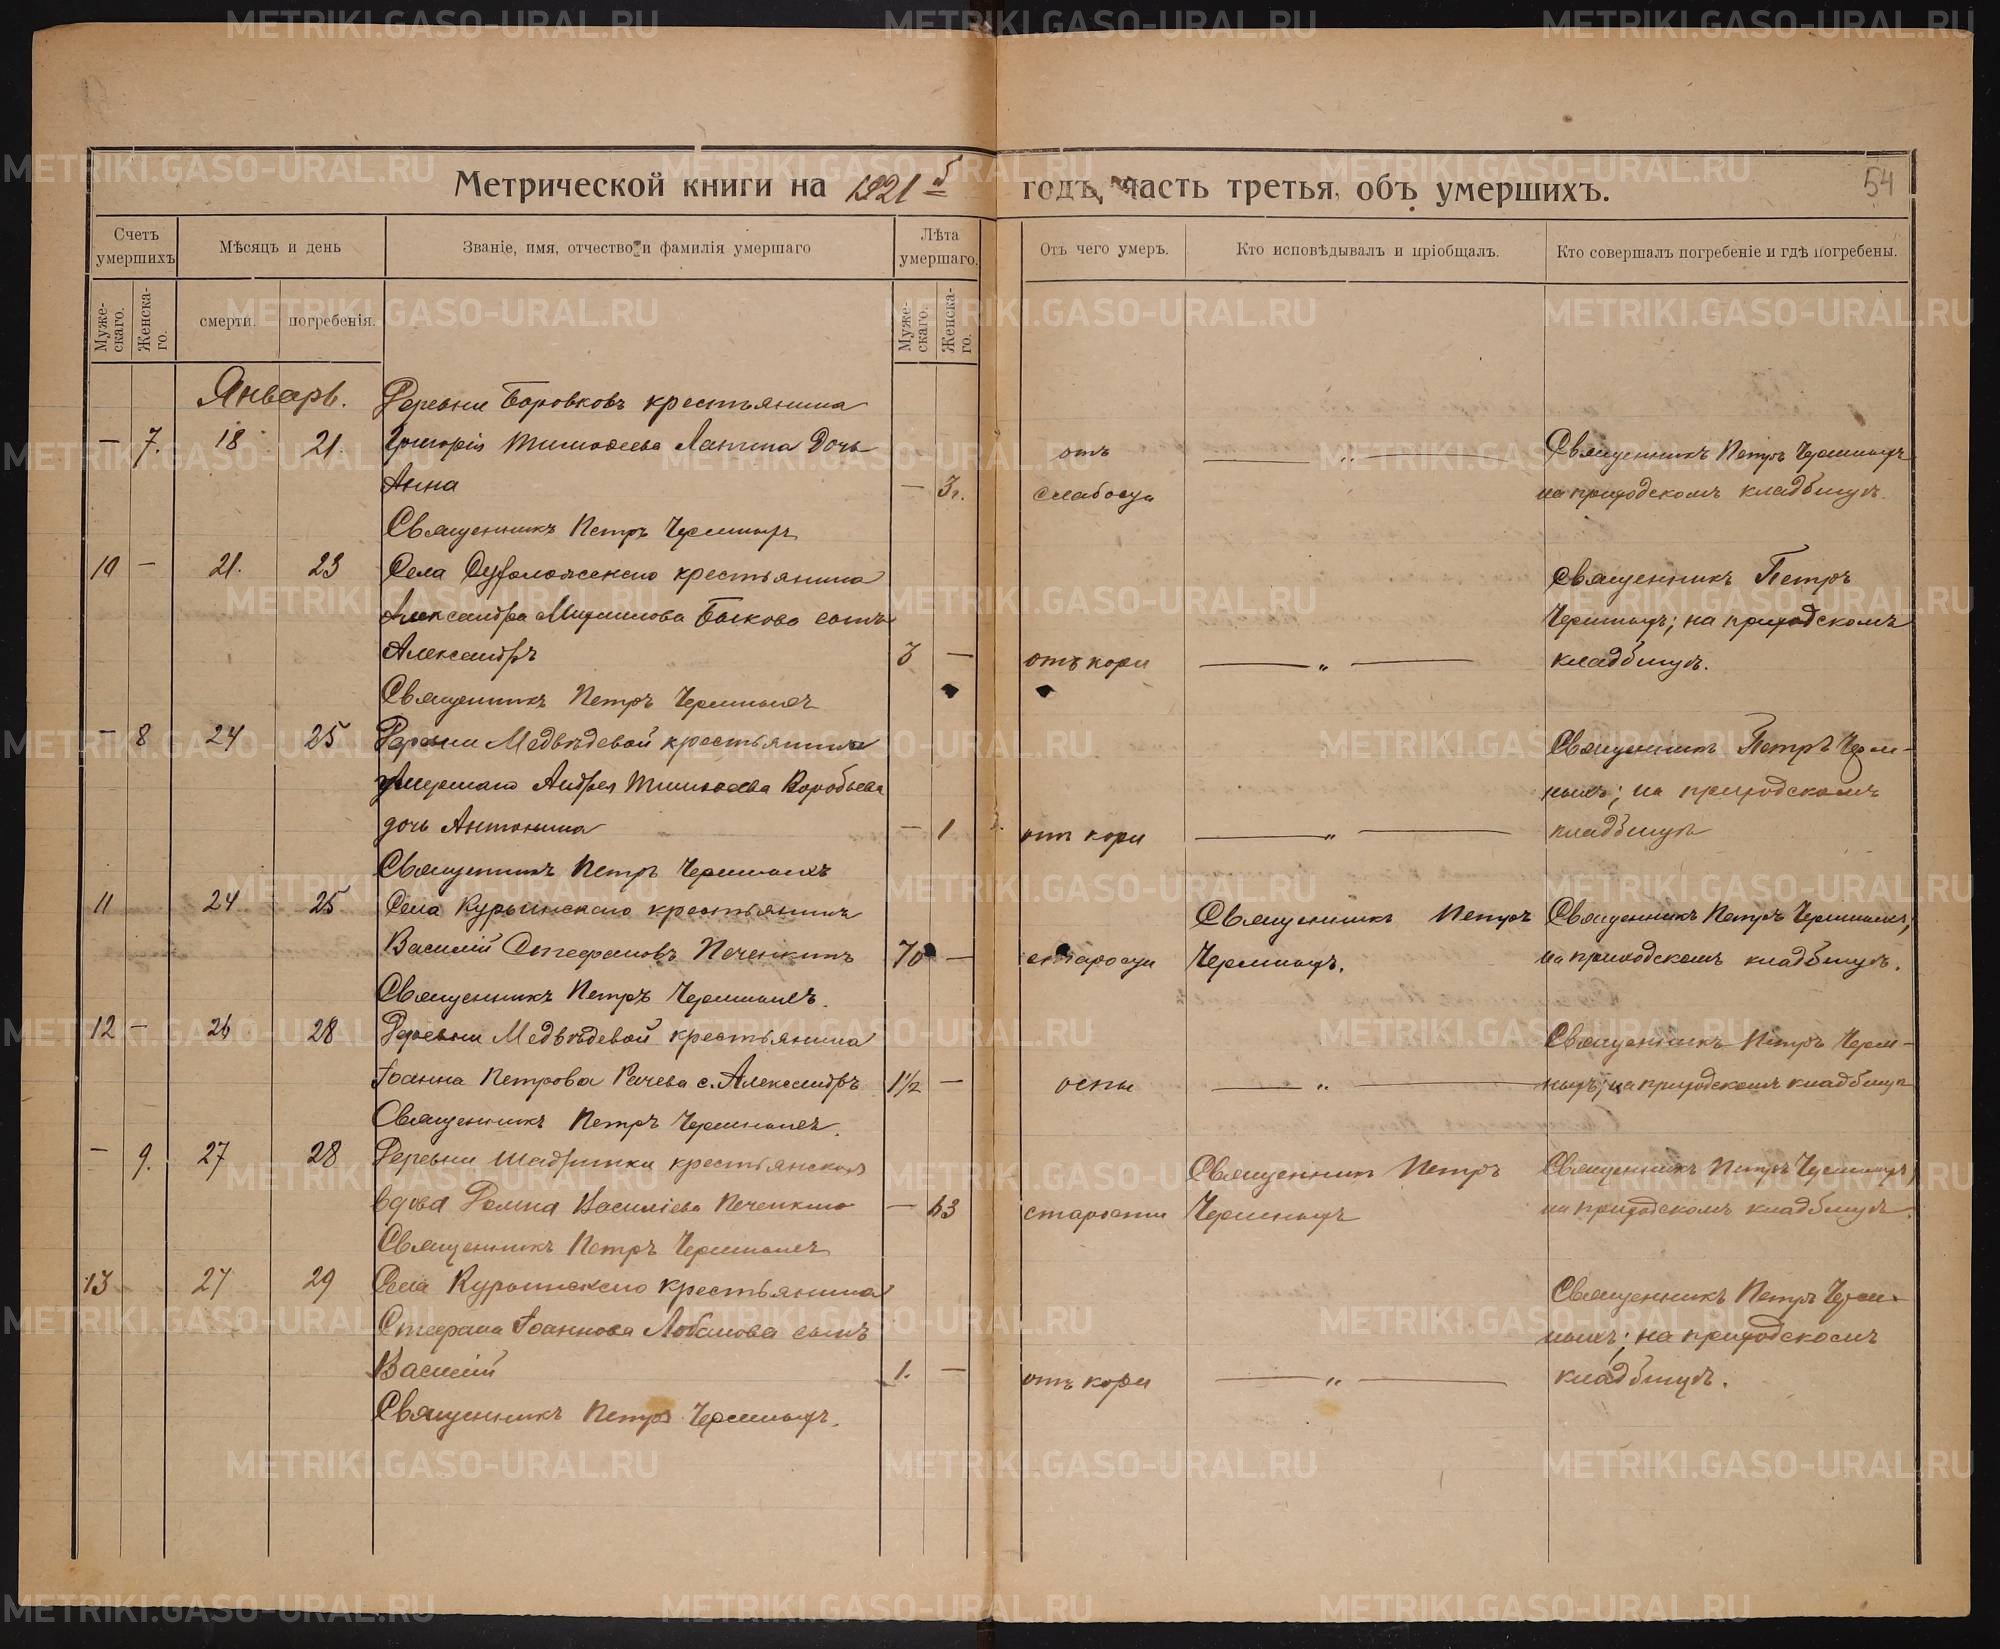 Метрической книги на 1921 й годъ, часть третья, объ умершихъ.
54
Счетъ умершихъ
Мѣсяцъ и день
Званіе, имя, отчество и фамилія умершаго
Лѣта умершаго.
Отъ чего умеръ.
Кто исповѣдывалъ и пріобщалъ.
Кто совершалъ погребеніе и гдѣ погребены.
Муже-скаго.
Женска-го.
смерти.
погребенія.
Муже-скаго.
Женска-го.
Январь.
Деревни Боровковъ крестьянина
— 7. 18 21. Григорія Тимофеева Лапина дочь
Анна — 3 г.
отъ слабости
— „ —
Священникъ Петръ Черемныхъ
на приходскомъ кладбищѣ.
Священникъ Петръ Черемныхъ
10 — 21. 23 Села Сухоложскаго крестьянина
Александра Михаилова Быкова сынъ
Александръ 3 —
отъ кори
— „ —
Священникъ Петръ
Черемныхъ; на приходскомъ
кладбищѣ.
Священникъ Петръ Черемныхъ
— 8 24 25 Деревни Медвѣдевой крестьянина
умершаго Андрея Тимофеева Коробьева
дочь Антонина — 1
отъ кори
— „ —
Священникъ Петръ Черем-
ныхъ; на приходскомъ
кладбищѣ
Священникъ Петръ Черемныхъ
11 24 25 Села Курьинскаго крестьянинъ
Василій Стефановъ Печенкинъ 70 —
старости
Священникъ Петръ
Черемныхъ.
Священникъ Петръ Черемныхъ,
на приходскомъ кладбищѣ.
Священникъ Петръ Черемныхъ.
12 — 26 28 Деревни Медвѣдевой крестьянина
Іоанна Петрова Рачева с. Александръ 1½ —
оспы
— „ —
Священникъ Петръ Черем-
ныхъ; на приходскомъ кладбищѣ
Священникъ Петръ Черемныхъ.
— 9. 27 28 Деревни Шадринки крестьянская
вдова Домна Василіева Печенкина — 63
старости
Священникъ Петръ
Черемныхъ
Священникъ Петръ Черемныхъ,
на приходскомъ кладбищѣ.
Священникъ Петръ Черемныхъ
13 27 29 Села Курьинскаго крестьянина
Стефана Іоаннова Лобанова сынъ
Василій 1. —
отъ кори
— „ —
Священникъ Петръ Черем-
ныхъ; на приходскомъ
кладбищѣ.
Священникъ Петръ Черемныхъ.
METRIKI.GASO-URAL.RU